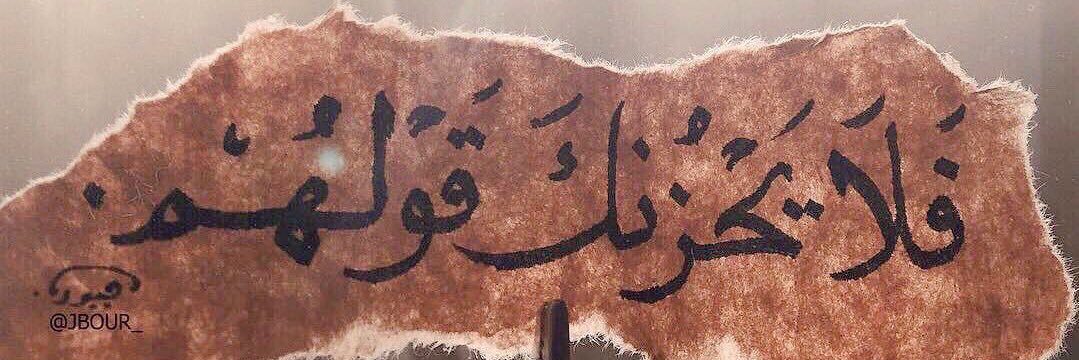 فَلَا يَحْزُنكَ قَوْلُهُمْ.
@JBOUR_